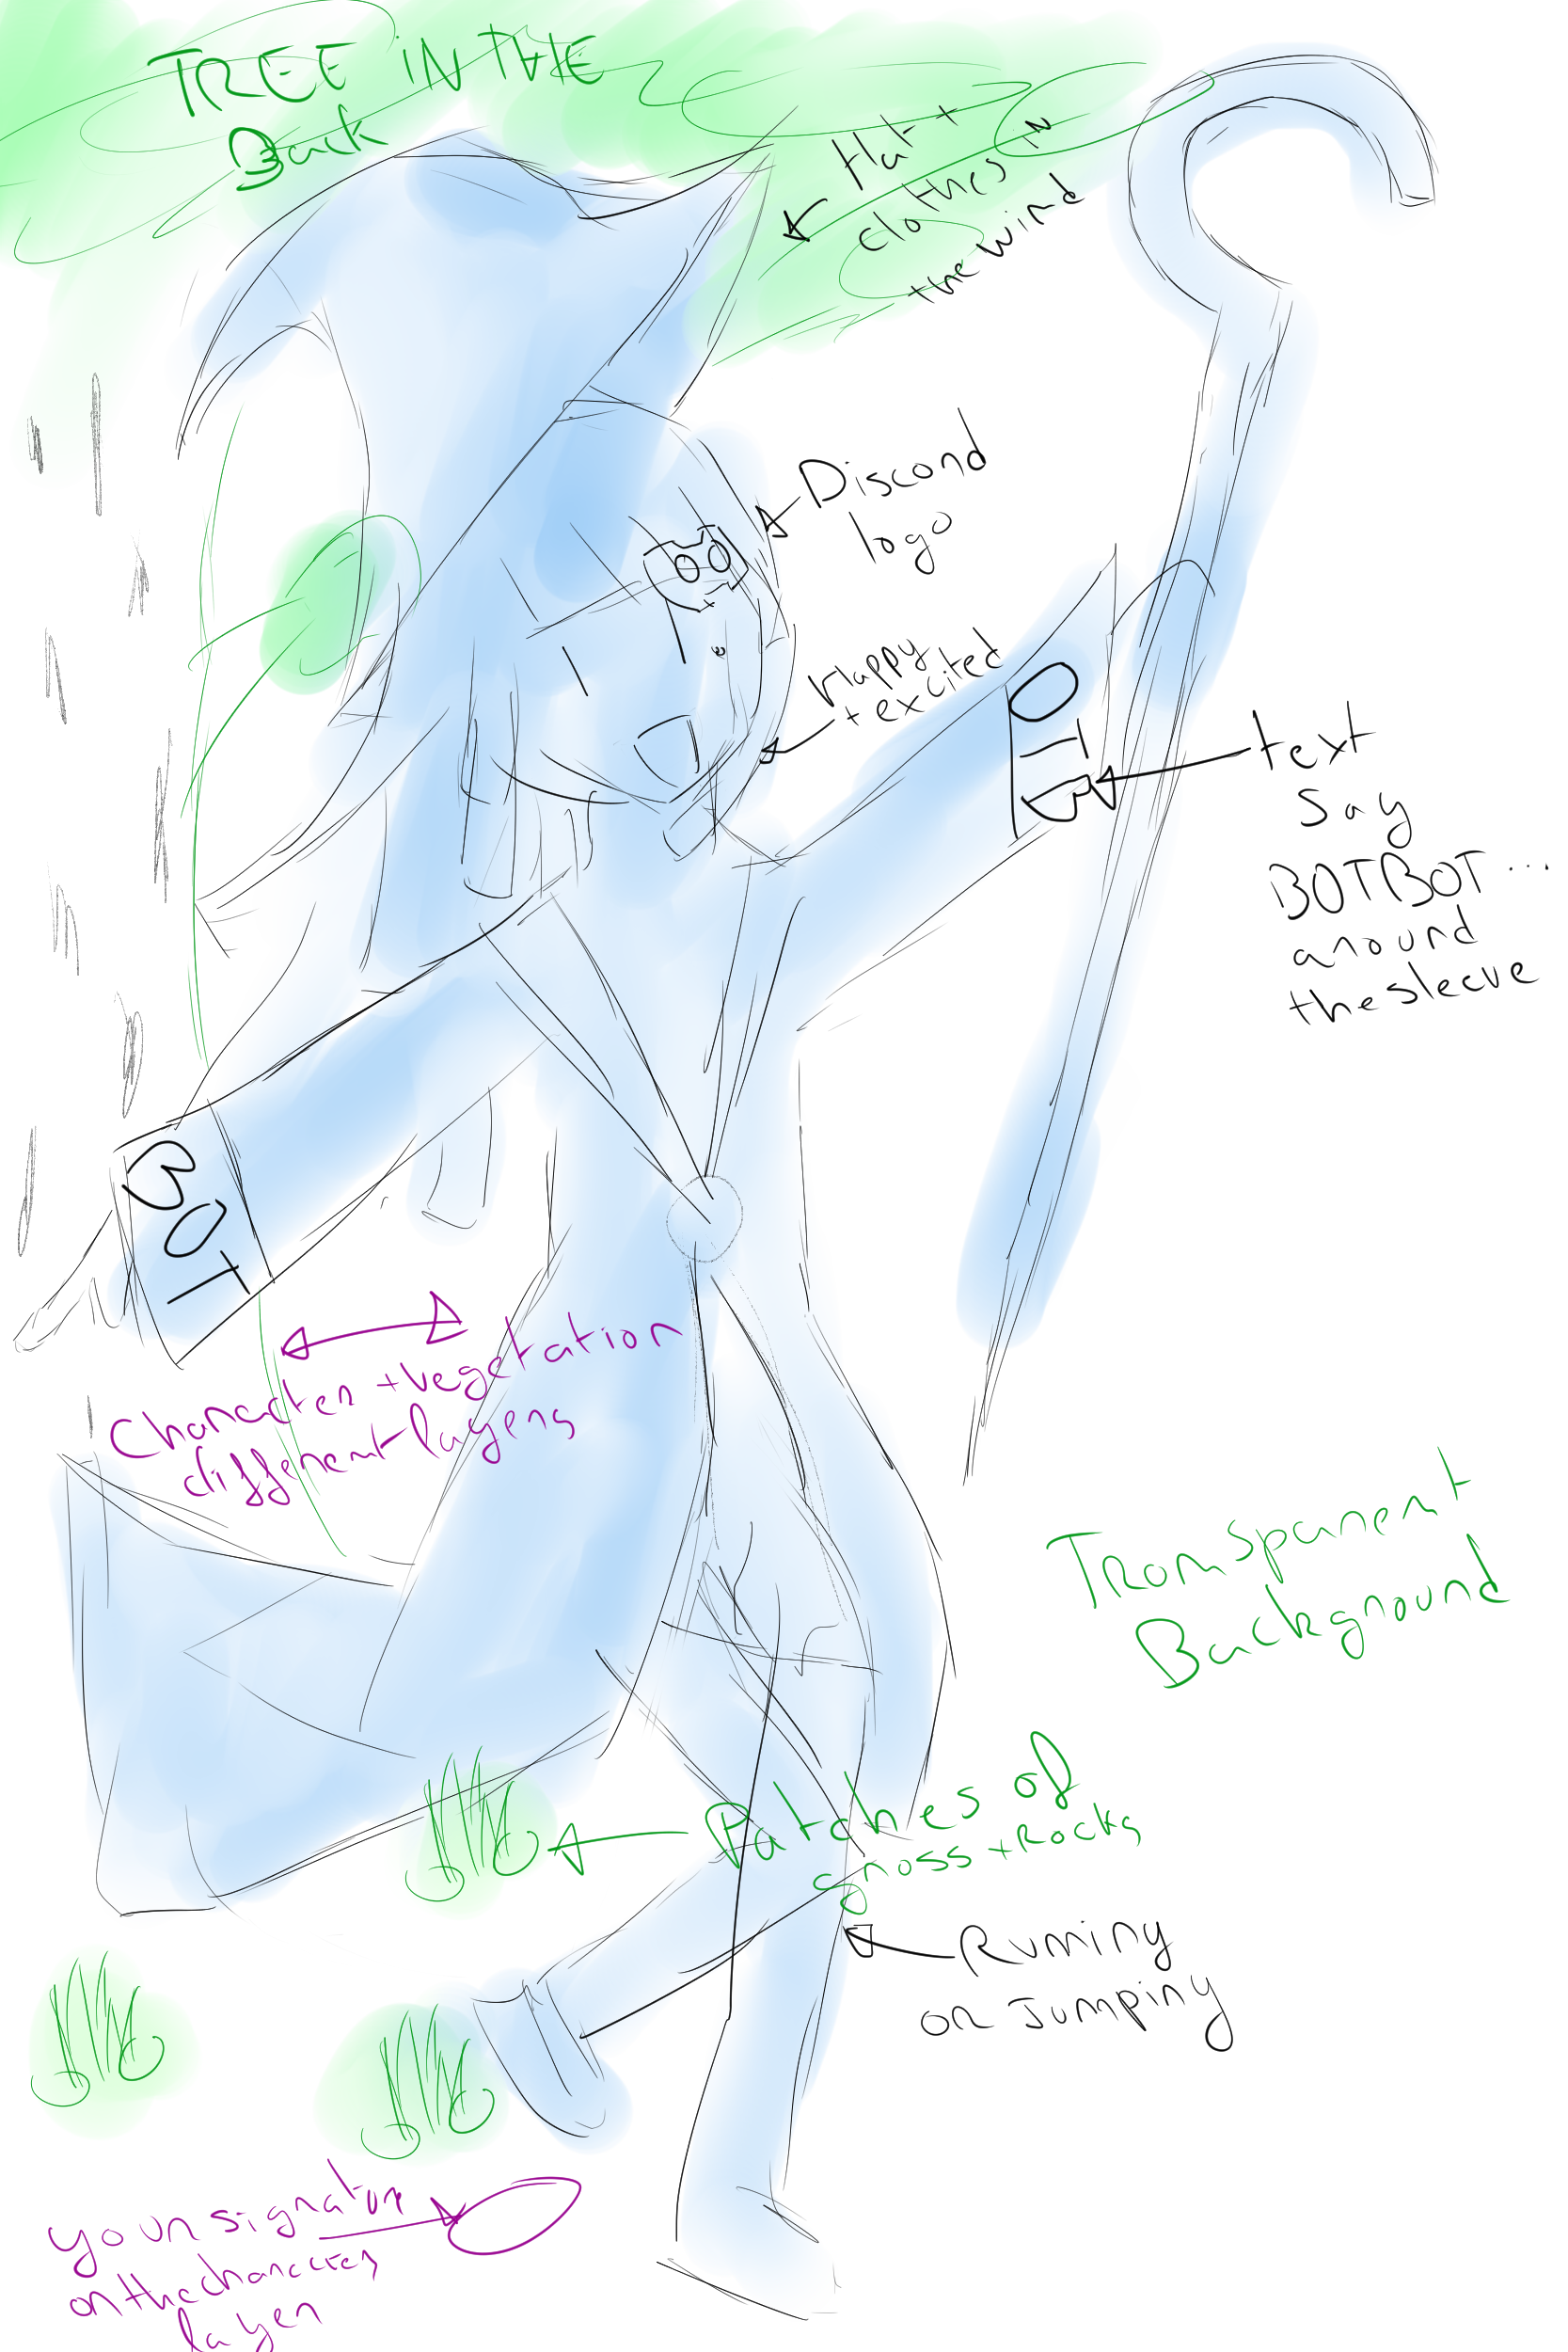 TREE IN THE
Back
Hat +
clothes in
the wind
Discord
logo
Happy
+ excited
OT
B
text
say
BOTBOT...
around
the sleeve
BOT
Character + vegetation
different layers
Transparent
Background
Patches of
grass + Rocks
Running
or Jumping
your signature
on the character
layer